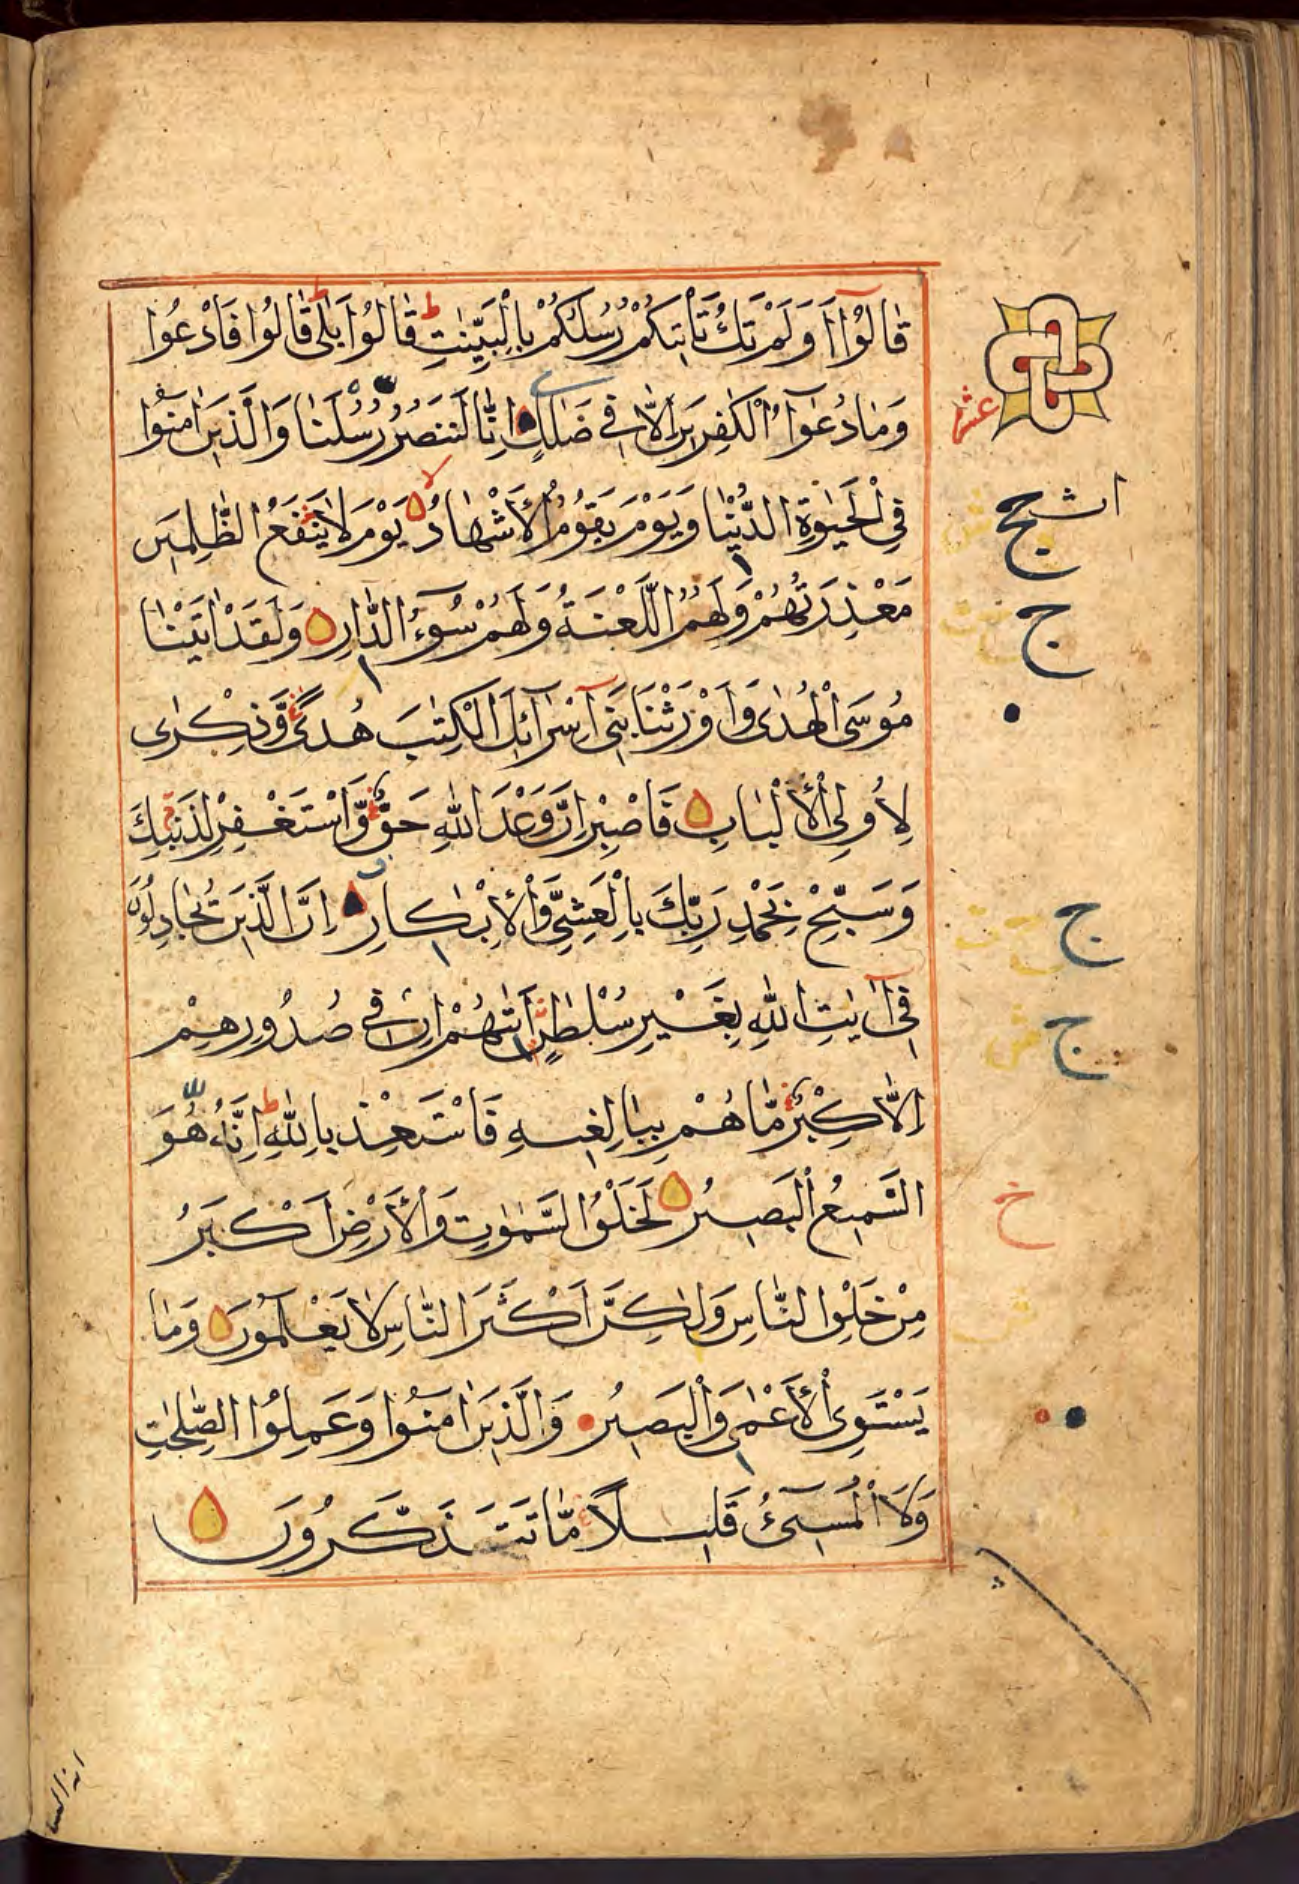 قَالُوٓا اَوَلَمْ تَكُ تَأْتِيكُمْ رُسُلُكُمْ بِالْبَيِّنٰتِ ط قَالُوا بَلٰى ط قَالُوا فَادْعُوا
وَمَا دُعٰٓؤُا الْكٰفِرِينَ اِلَّا فِى ضَلٰلٍ اِنَّا لَنَنْصُرُ رُسُلَنَا وَالَّذِينَ اٰمَنُوا
عشر
فِى الْحَيٰوةِ الدُّنْيَا وَيَوْمَ يَقُومُ الْاَشْهَادُ لا يَوْمَ لَا يَنْفَعُ الظّٰلِمِينَ
مَعْذِرَتُهُمْ وَلَهُمُ اللَّعْنَةُ وَلَهُمْ سُوٓءُ الدَّارِ وَلَقَدْ اٰتَيْنَا
ج
مُوسَى الْهُدٰى وَاَوْرَثْنَا بَنِىٓ اِسْرَآئِلَ الْكِتٰبَ هُدًى وَّذِكْرٰى
لِاُولِى الْاَلْبَابِ فَاصْبِرْ اِنَّ وَعْدَ اللّٰهِ حَقٌّ وَّاسْتَغْفِرْ لِذَنْبِكَ
وَسَبِّحْ بِحَمْدِ رَبِّكَ بِالْعَشِىِّ وَالْاِبْكَارِ اِنَّ الَّذِينَ يُجَادِلُونَ
ج
فِىٓ اٰيٰتِ اللّٰهِ بِغَيْرِ سُلْطٰنٍ اَتٰىهُمْ اِنْ فِى صُدُورِهِمْ
ج
اِلَّا كِبْرٌ مَّا هُمْ بِبَالِغِيهِ فَاسْتَعِذْ بِاللّٰهِ ط اِنَّهُ هُوَ
السَّمِيعُ الْبَصِيرُ لَخَلْقُ السَّمٰوٰتِ وَالْاَرْضِ اَكْبَرُ
خ
مِنْ خَلْقِ النَّاسِ وَلٰكِنَّ اَكْثَرَ النَّاسِ لَا يَعْلَمُونَ وَمَا
يَسْتَوِى الْاَعْمٰى وَالْبَصِيرُ وَالَّذِينَ اٰمَنُوا وَعَمِلُوا الصّٰلِحٰتِ
وَلَا الْمُسِىٓءُ قَلِيلًا مَّا تَتَذَكَّرُونَ